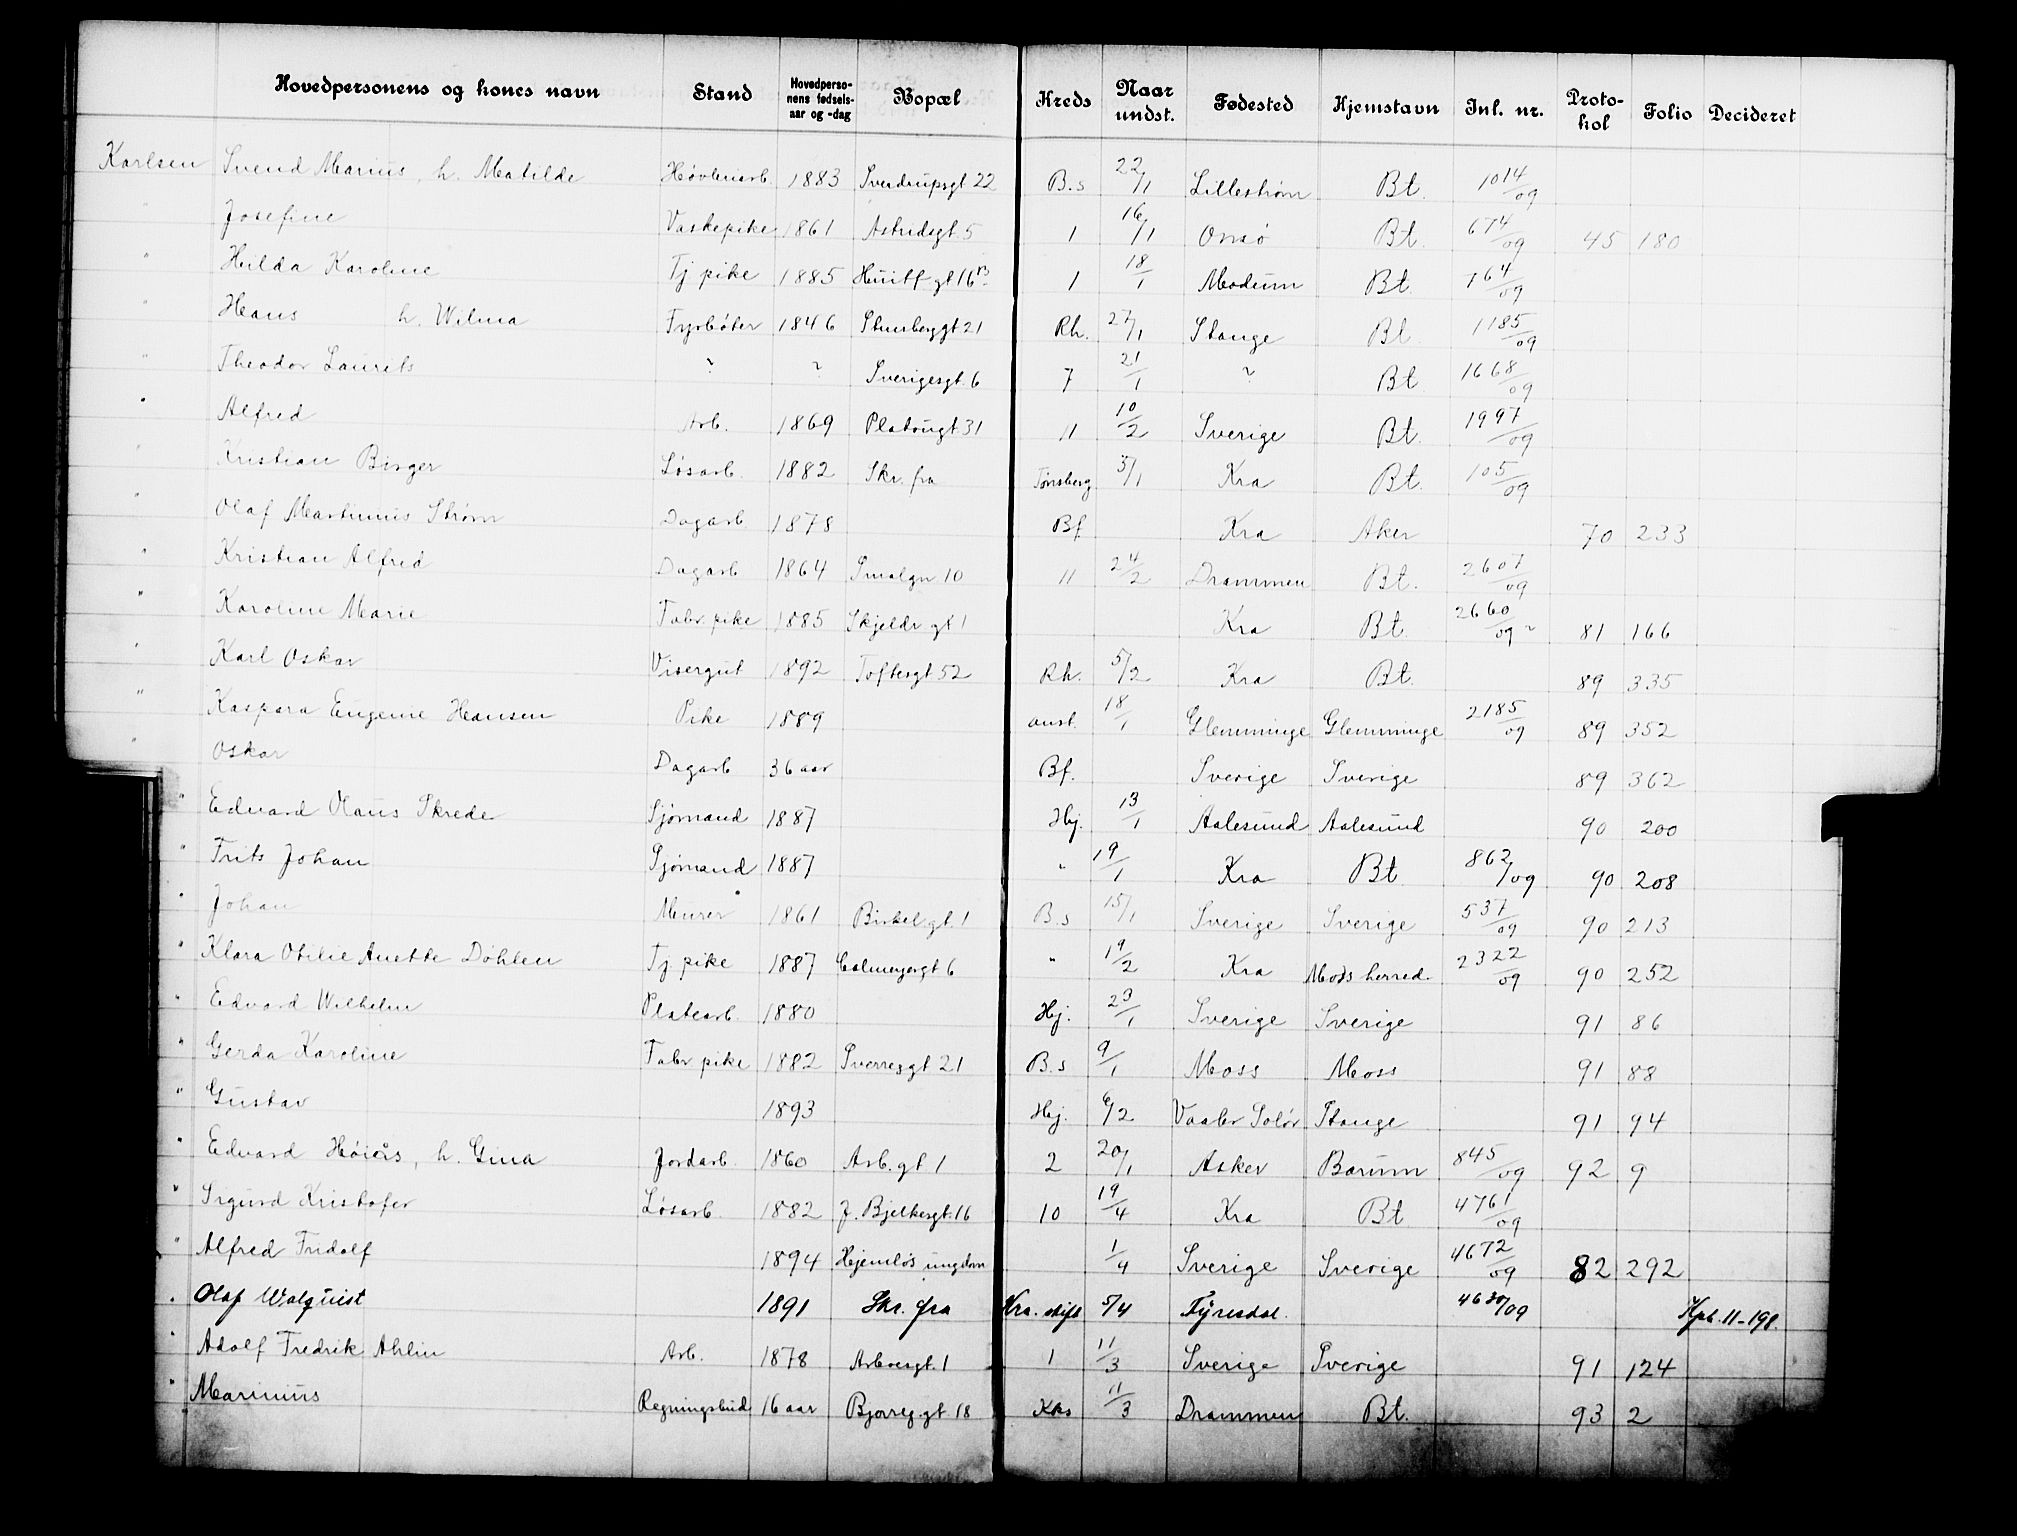 Hovedpersonens og kones navn Stand Hovedpersonens fødselsaar og -dag Bopæl Kreds Naar undst. Fødested Hjemstavn Inl. nr. Protokol Folio Decideret
Karlsen Svend Marius, h. Matilde Høvleriarb. 1883 Sverdrupsgt 22 B.s 22/1 Lillestrøm Bt. 1014/09
" Josefine Vaskepike 1861 Astridsgt. 5 1 16/1 Onsø Bt. 674/09 45 180
" Hilda Karoline Tj pike 1885 Huitf gt 16 B 1 18/1 Modum Bt. 764/09
" Hans h. Wilma Fyrbøter 1846 Stensberggt 21 Rh. 27/1 Stange Bt. 1185/09
" Theodor Laurits ? ? Sverigesgt. 6 7 21/1 ? Bt 1668/09
" Alfred Arb. 1869 Platougt. 31 11 10/2 Sverige Bt. 1997/09
" Kristian Birger Løsarb. 1882 Skr. fra Tønsberg 5/1 Kra Bt. 105/09
" Olaf Martinius Strøm Dagarb 1878 Bf Kra Aker 70 233
" Kristian Alfred Dagarb 1864 Smalgn 10 11 24/2 Drammen Bt. 2607/09
" Karoline Marie Fabr. pike 1885 Skjeldr gt 1 Kra Bt. 2660/09 81 166
" Karl Oskar Visergut 1892 Toftesgt 52 Rh. 5/2 Kra Bt. 89 335
" Kaspara Eugenie Hansen Pike 1889 anst. 18/1 Glemminge Glemminge 2185/09 89 352
" Oskar Dagarb 36 aar Bf. Sverige Sverige 89 362
" Edvard Olaus Skrede Sjømand 1887 Hj. 13/1 Aalesund Aalesund 90 200
" Frits Johan Sjømand 1887 " 19/1 Kra Bt 862/09 90 208
" Johan Murer 1861 Birkel.gt. 1 B.s 15/1 Sverige Sverige 537/09 90 213
" Klara Otilie Anette Døhlen Tj pike 1887 Calmeyergt 6 " 19/2 Kra Mods herred. 2322/09 90 252
" Edvard Wilhelm Platearb. 1880 Hj. 23/1 Sverige Sverige 91 86
" Gerda Karoline Fabr pike 1882 Sverresgt 21 B.s 9/1 Moss Moss 91 88
" Gustav 1893 Hj. 6/2 Vaaler Solør Stange 91 94
" Edvard Høiås, h. Gina Jordarb. 1860 Arb. gt 1 2 20/1 Asker Bærum 845/09 92 9
" Sigurd Kristofer Løsarb. 1882 J. Bjelkesgt. 16 10 19/4 Kra Bt 4761/09
" Alfred Fridolf 1894 Hjemløs ungdom 1/4 Sverige Sverige 4672/09 82 292
" Olaf Walquist 1891 Skr. fra Kra. stift 5/4 Fyresdal. 4630/09 Kpt. 11-198.
" Adolf Fredrik Ahlin Arb. 1878 Arboesgt. 1 1 11/3 Sverige Sverige 91 124
" Marinius Regningsbud 16 aar Bjerreg.gt 18 11/3 Drammen Bt. 93 2